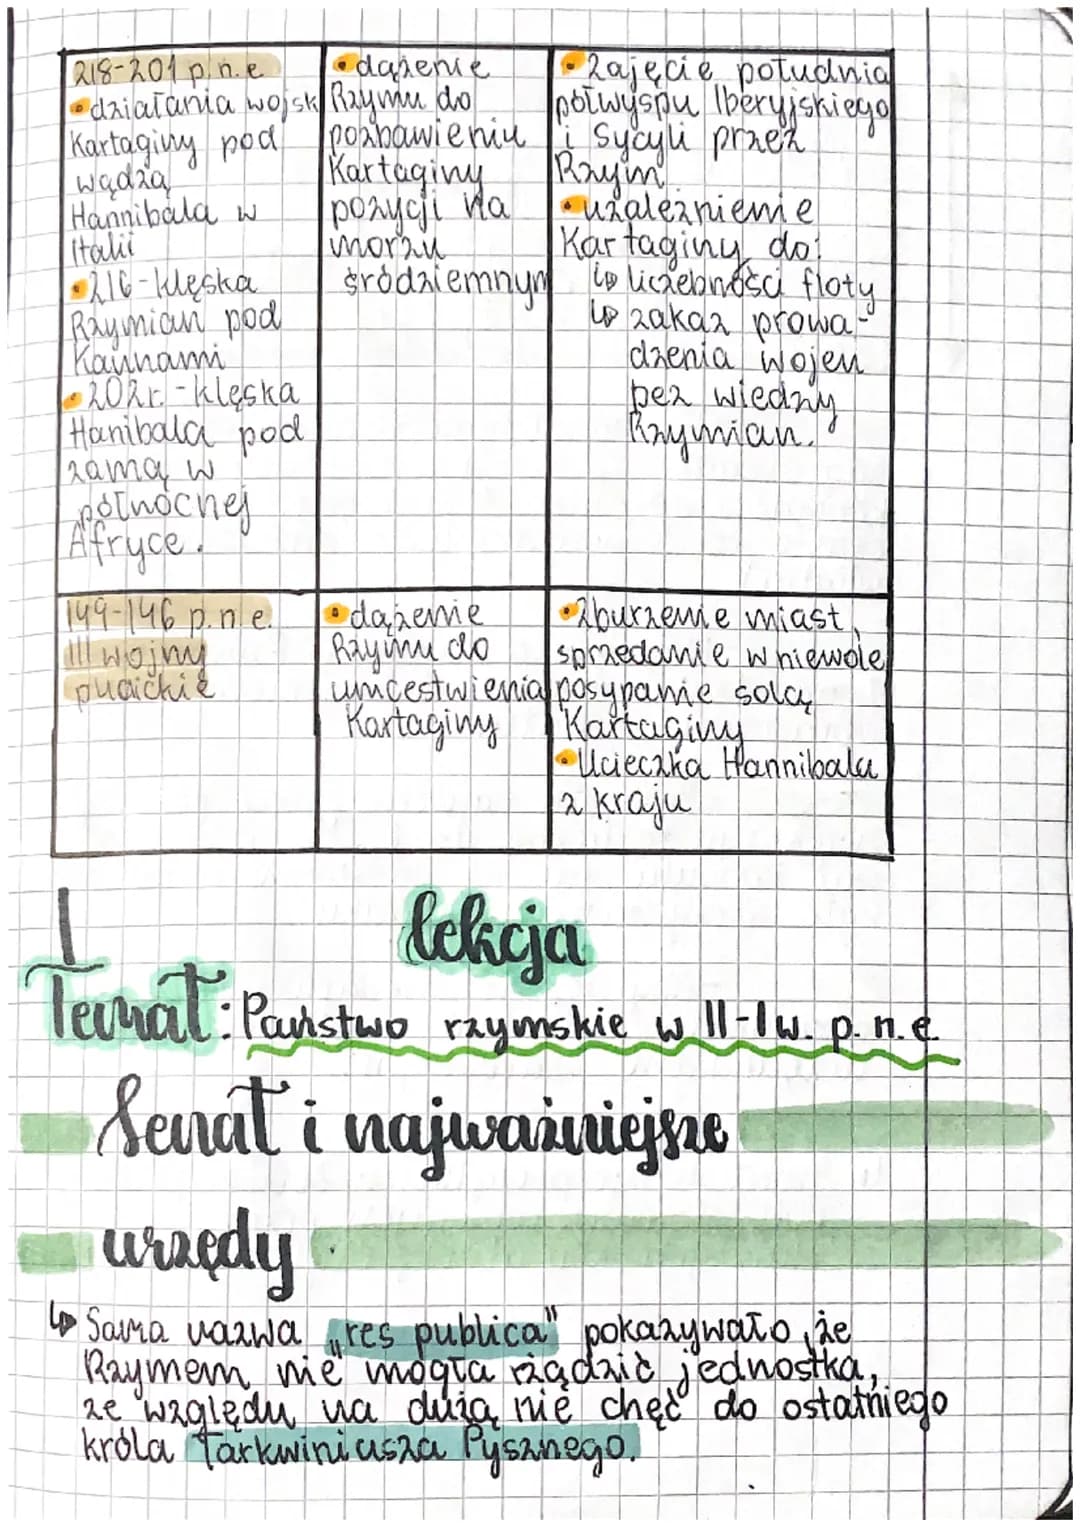 218-201 p.n.e
•działania wojsk
Kartaginy pod
wądzą
Hannibala w
Italii
•216-klęska
Rzymian pod
Kannami
•202r.-klęska
Hanibala pod
zamą w
północnej
Afryce.
•dążenie
Rzymu do
pozbawieniu
Kartaginy
pozycji na
morzu
śródziemnym
•zajęcie południa
półwyspu Iberyjskiego
i Sycyli przez
Rzym
•uzależnienie
Kartaginy do:
↳ liczebności floty
↳ zakaz prowa-
dzenia wojen
bez wiedzy
Rzymian.
149-146 p.n.e.
III wojny
punickie
•dążenie
Rzymu do
unicestwienia
Kartaginy
•zburzenie miast,
sprzedanie w niewolę
posypanie solą
Kartaginy
•Ucieczka Hannibala
z kraju
lekcja
Temat: Państwo rzymskie w II-I w. p.n.e.
Senat i najważniejsze
urzędy
↳ Sama nazwa „res publica" pokazywało, że
Rzymem nie mogła rządzić jednostka,
ze względu na dużą nie chęć do ostatniego
króla Tarkwiniusza Pysznego.